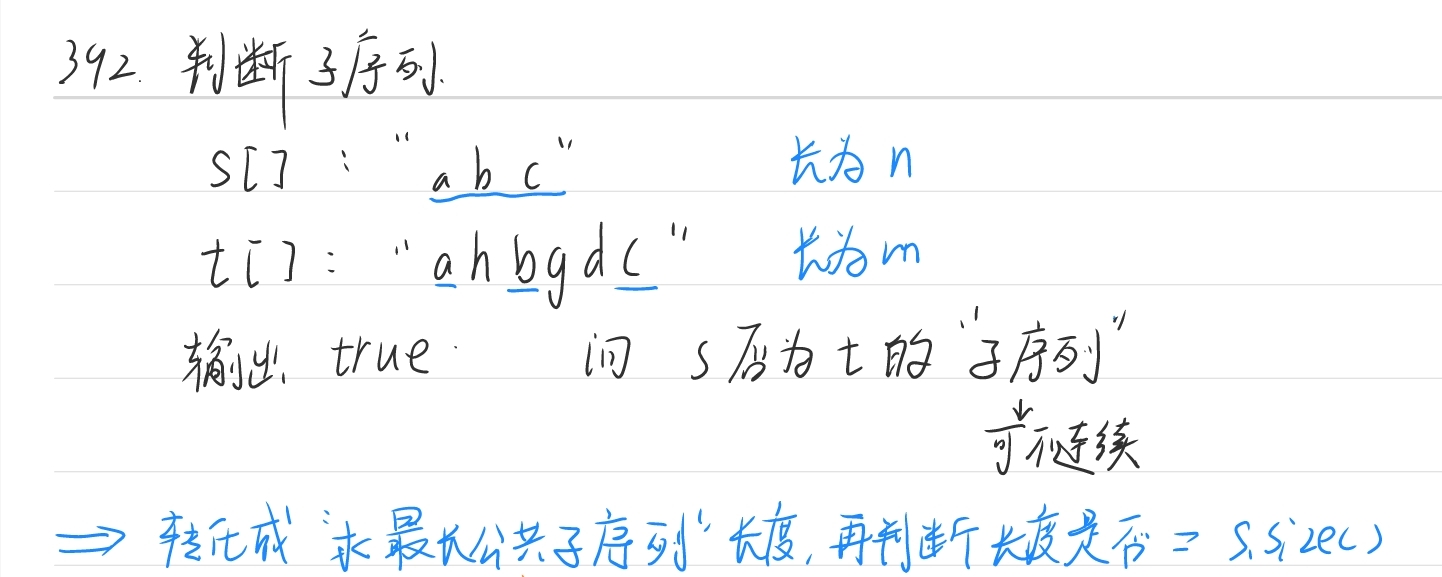 392. 判断子序列.
s[] : "abc" 长为 n
t[] : "ahbgdc" 长为 m
输出 true. 问 s 否为 t 的 "子序列"
↓
可不连续
⇒ 转化成 "求最长公共子序列" 长度, 再判断长度是否 = s.size()